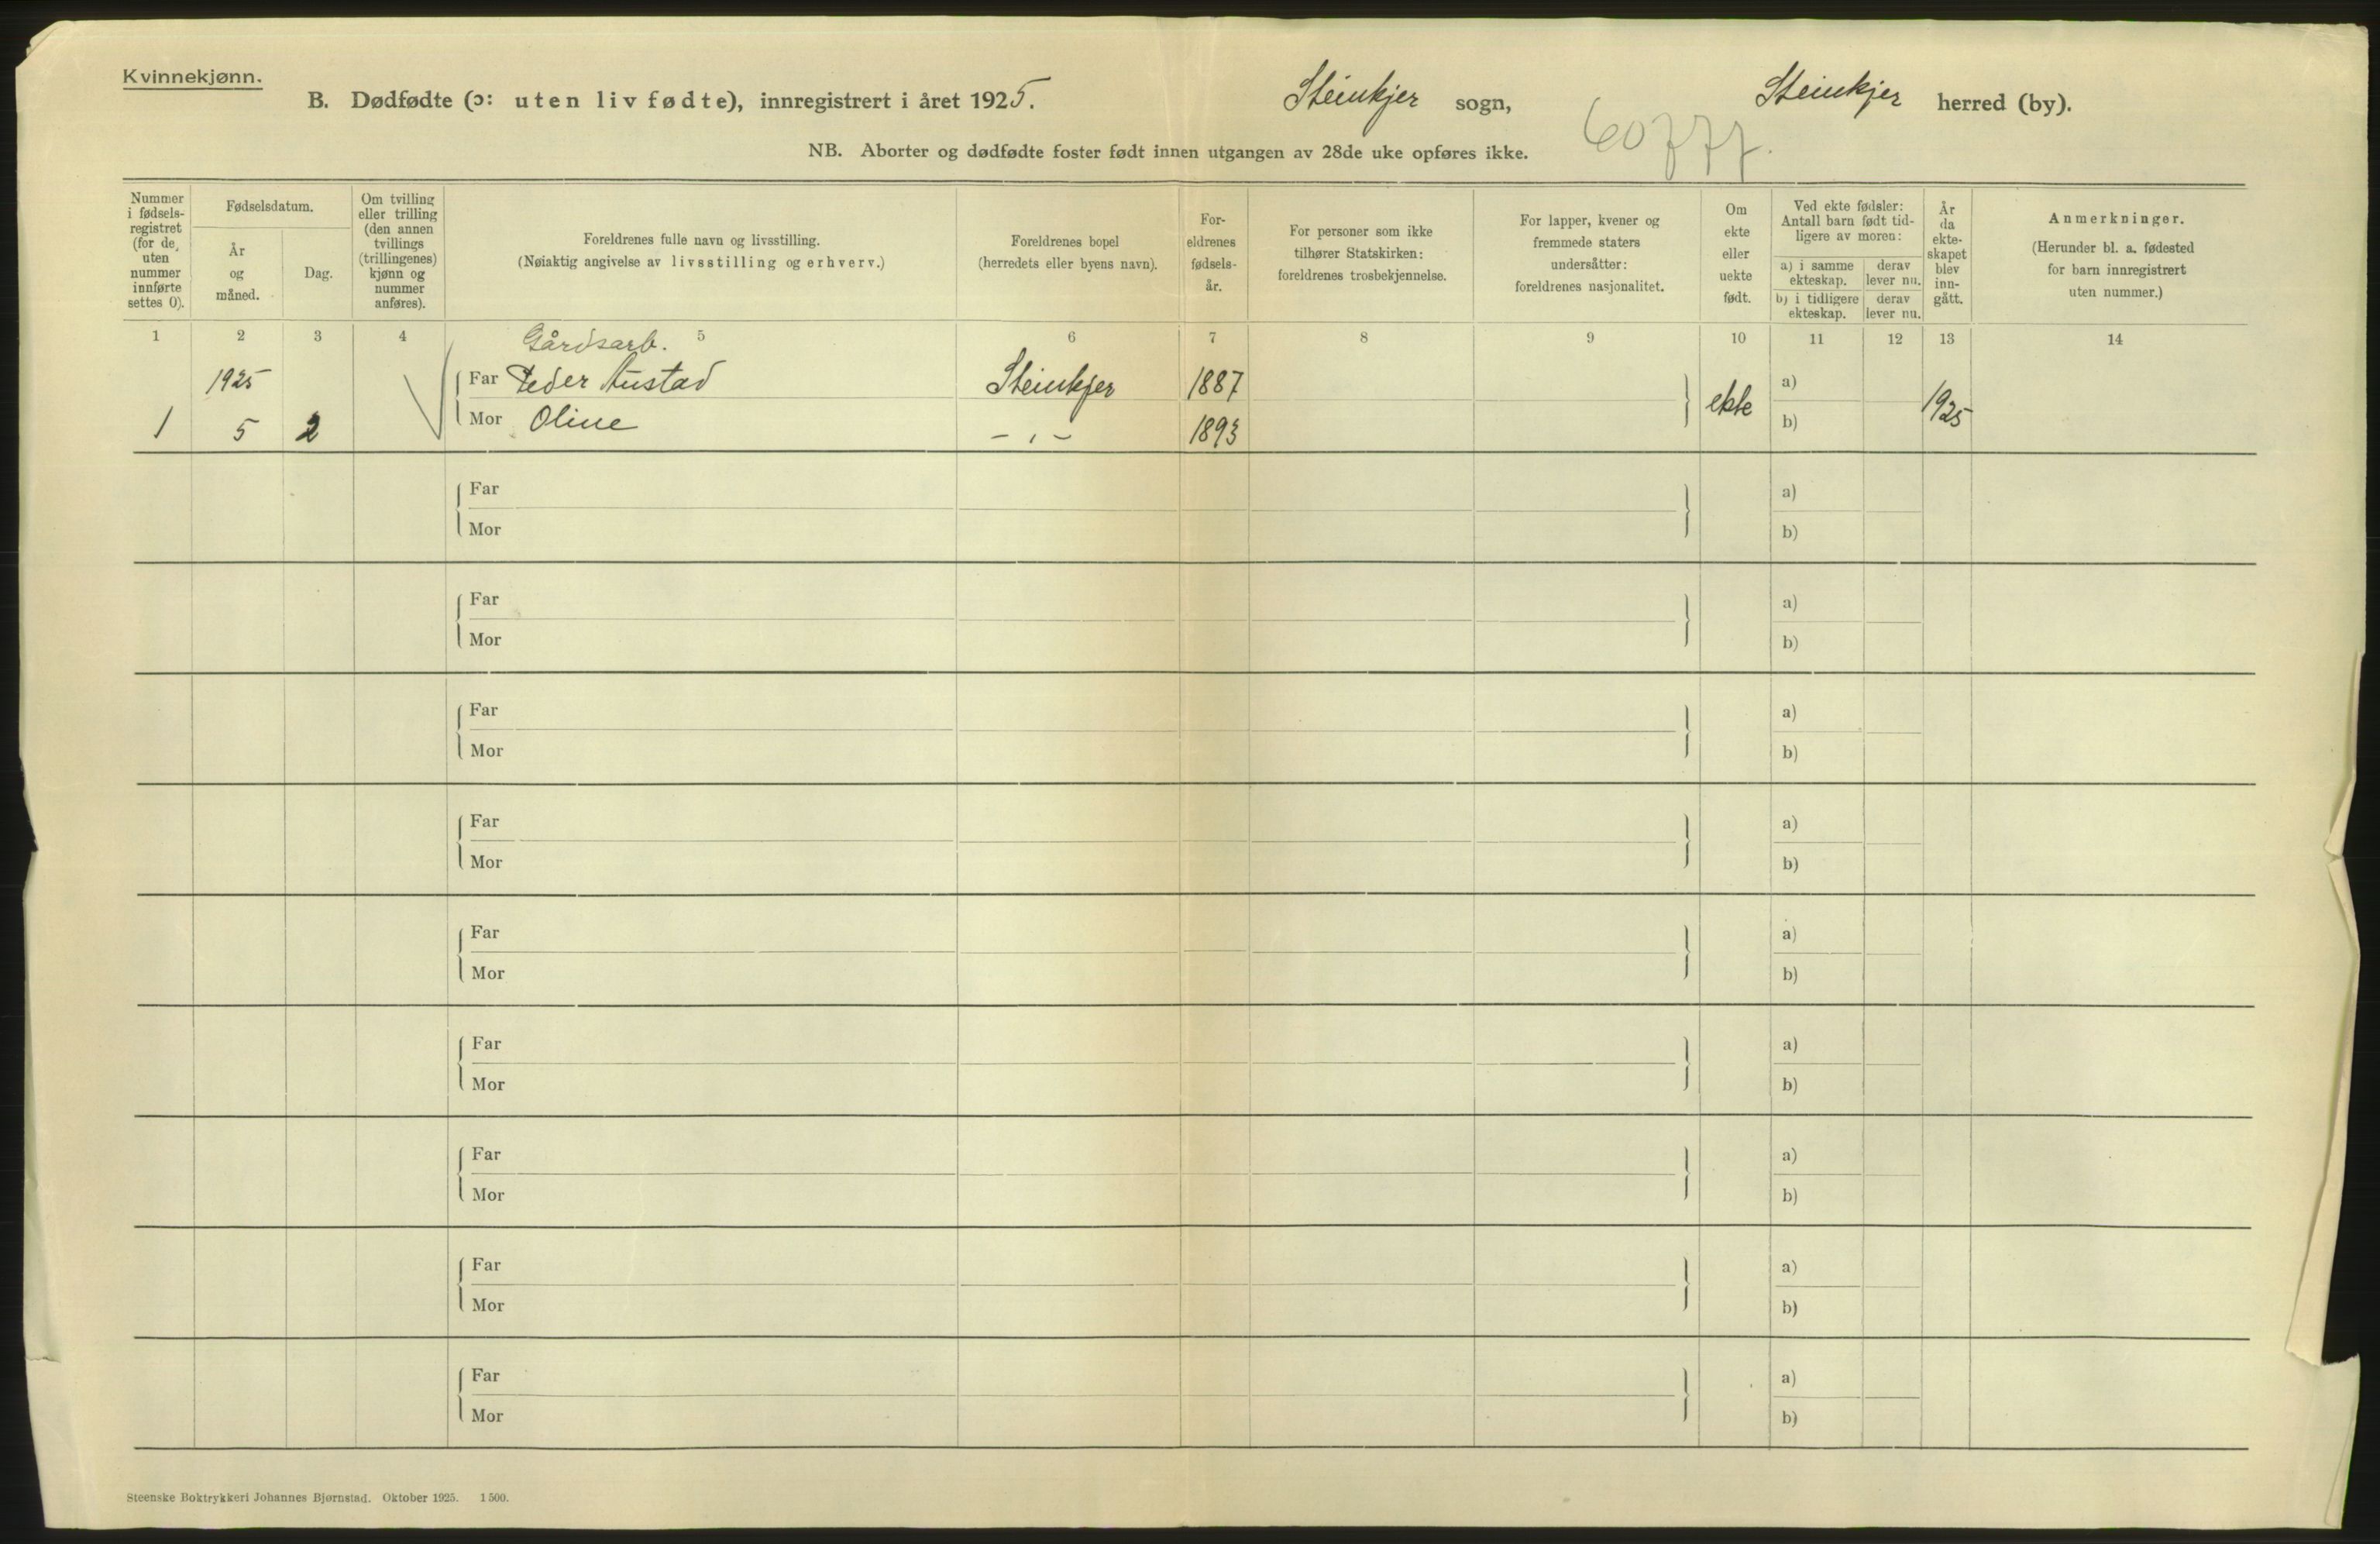 Kvinnekjønn.
B. Dødfødte (ɔ: uten liv fødte), innregistrert i året 1925. Steinkjer sogn, Steinkjer herred (by).
NB. Aborter og dødfødte foster født innen utgangen av 28de uke opføres ikke.
60777.
Nummer i fødsels-registret (for de, uten nummer innførte settes 0).
Fødselsdatum.
År og måned.
Dag.
Om tvilling eller trilling (den annen tvillings (trillingenes) kjønn og nummer anføres).
Foreldrenes fulle navn og livsstilling.
(Nøiaktig angivelse av livsstilling og erhverv.)
Foreldrenes bopel
(herredets eller byens navn).
For-eldrenes fødsels-år.
For personer som ikke tilhører Statskirken: foreldrenes trosbekjennelse.
For lapper, kvener og fremmede staters undersåtter: foreldrenes nasjonalitet.
Om ekte eller uekte født.
Ved ekte fødsler: Antall barn født tid-ligere av moren:
a) i samme ekteskap. derav lever nu.
b) i tidligere ekteskap. derav lever nu.
År da ekte-skapet blev inn-gått.
Anmerkninger.
(Herunder bl. a. fødested for barn innregistrert uten nummer.)
1 2 3 4 5 6 7 8 9 10 11 12 13 14
Gårdsarb.
1925 Far Peder Austad Steinkjer 1887 ekte a) 1925
1 5 2 Mor Oline – „ – 1893 b)
Far a)
Mor b)
Far a)
Mor b)
Far a)
Mor b)
Far a)
Mor b)
Far a)
Mor b)
Far a)
Mor b)
Far a)
Mor b)
Far a)
Mor b)
Far a)
Mor b)
Steenske Boktrykkeri Johannes Bjørnstad. Oktober 1925. 1500.